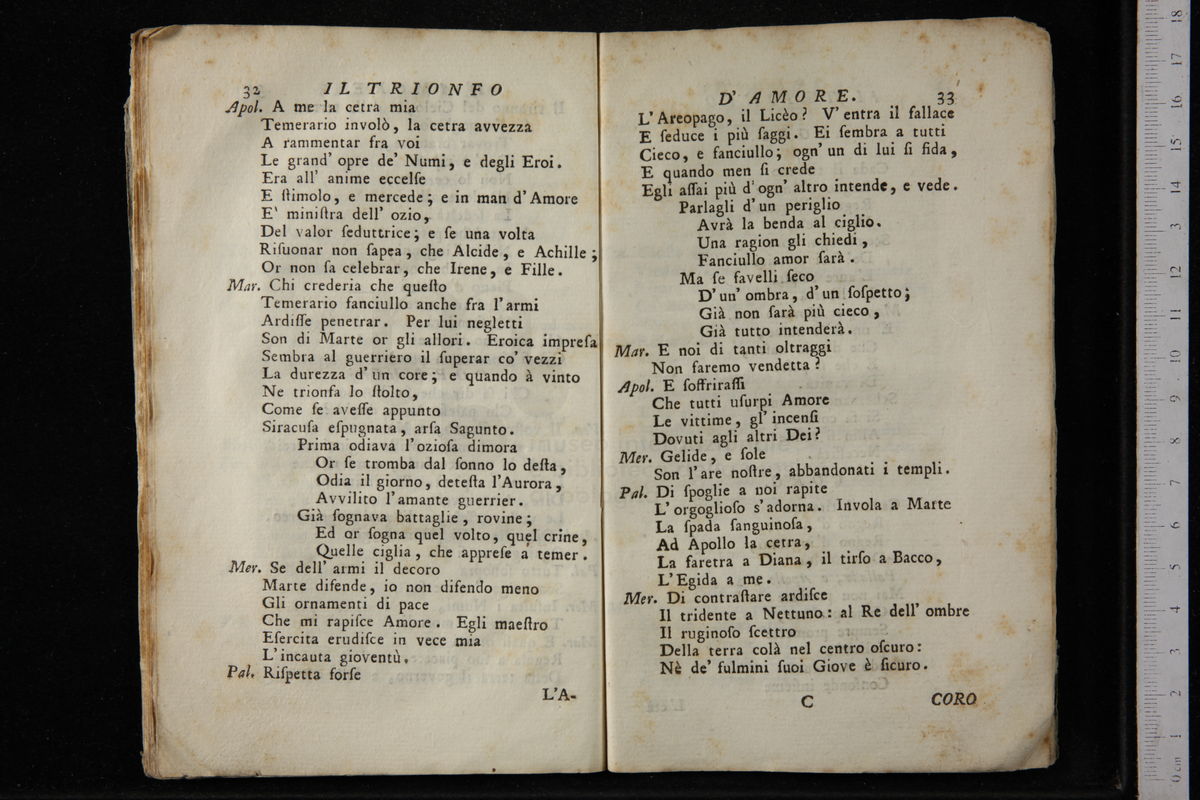 32 IL TRIONFO
Apol. A me la cetra mia
Temerario involò, la cetra avvezza
A rammentar fra voi
Le grand' opre de' Numi, e degli Eroi.
Era all' anime eccelſe
E ſtimolo, e mercede; e in man d'Amore
E' miniſtra dell' ozio,
Del valor ſeduttrice; e ſe una volta
Riſuonar non ſapea, che Alcide, e Achille;
Or non ſa celebrar, che Irene, e Fille.
Mar. Chi crederia che queſto
Temerario fanciullo anche fra l'armi
Ardiſſe penetrar. Per lui negletti
Son di Marte or gli allori. Eroica impreſa
Sembra al guerriero il ſuperar co' vezzi
La durezza d'un core; e quando à vinto
Ne trionfa lo ſtolto,
Come ſe aveſſe appunto
Siracuſa eſpugnata, arſa Sagunto.
Prima odiava l'ozioſa dimora
Or ſe tromba dal ſonno lo deſta,
Odia il giorno, deteſta l'Aurora,
Avvilito l'amante guerrier.
Già ſognava battaglie, rovine;
Ed or ſogna quel volto, quel crine,
Quelle ciglia, che appreſe a temer.
Mer. Se dell' armi il decoro
Marte difende, io non difendo meno
Gli ornamenti di pace
Che mi rapiſce Amore. Egli maeſtro
Eſercita erudiſce in vece mia
L'incauta gioventù.
Pal. Riſpetta forſe
L'A-
D' AMORE. 33
L'Areopago, il Licèo? V'entra il fallace
E ſeduce i più ſaggi. Ei ſembra a tutti
Cieco, e fanciullo; ogn' un di lui ſi fida,
E quando men ſi crede
Egli aſſai più d'ogn' altro intende, e vede.
Parlagli d'un periglio
Avrà la benda al ciglio.
Una ragion gli chiedi,
Fanciullo amor ſarà.
Ma ſe favelli ſeco
D'un' ombra, d'un ſoſpetto;
Già non ſarà più cieco,
Già tutto intenderà.
Mar. E noi di tanti oltraggi
Non faremo vendetta?
Apol. E ſoffriraſſi
Che tutti uſurpi Amore
Le vittime, gl' incenſi
Dovuti agli altri Dei?
Mer. Gelide, e ſole
Son l'are noſtre, abbandonati i templi.
Pal. Di ſpoglie a noi rapite
L'orgoglioſo s'adorna. Invola a Marte
La ſpada ſanguinoſa,
Ad Apollo la cetra,
La faretra a Diana, il tirſo a Bacco,
L'Egida a me.
Mer. Di contraſtare ardiſce
Il tridente a Nettuno: al Re dell' ombre
Il ruginoſo ſcettro
Della terra colà nel centro oſcuro:
Nè de' fulmini ſuoi Giove è ſicuro.
C CORO
0 cm 1 2 3 4 5 6 7 8 9 10 11 12 13 14 15 16 17 18